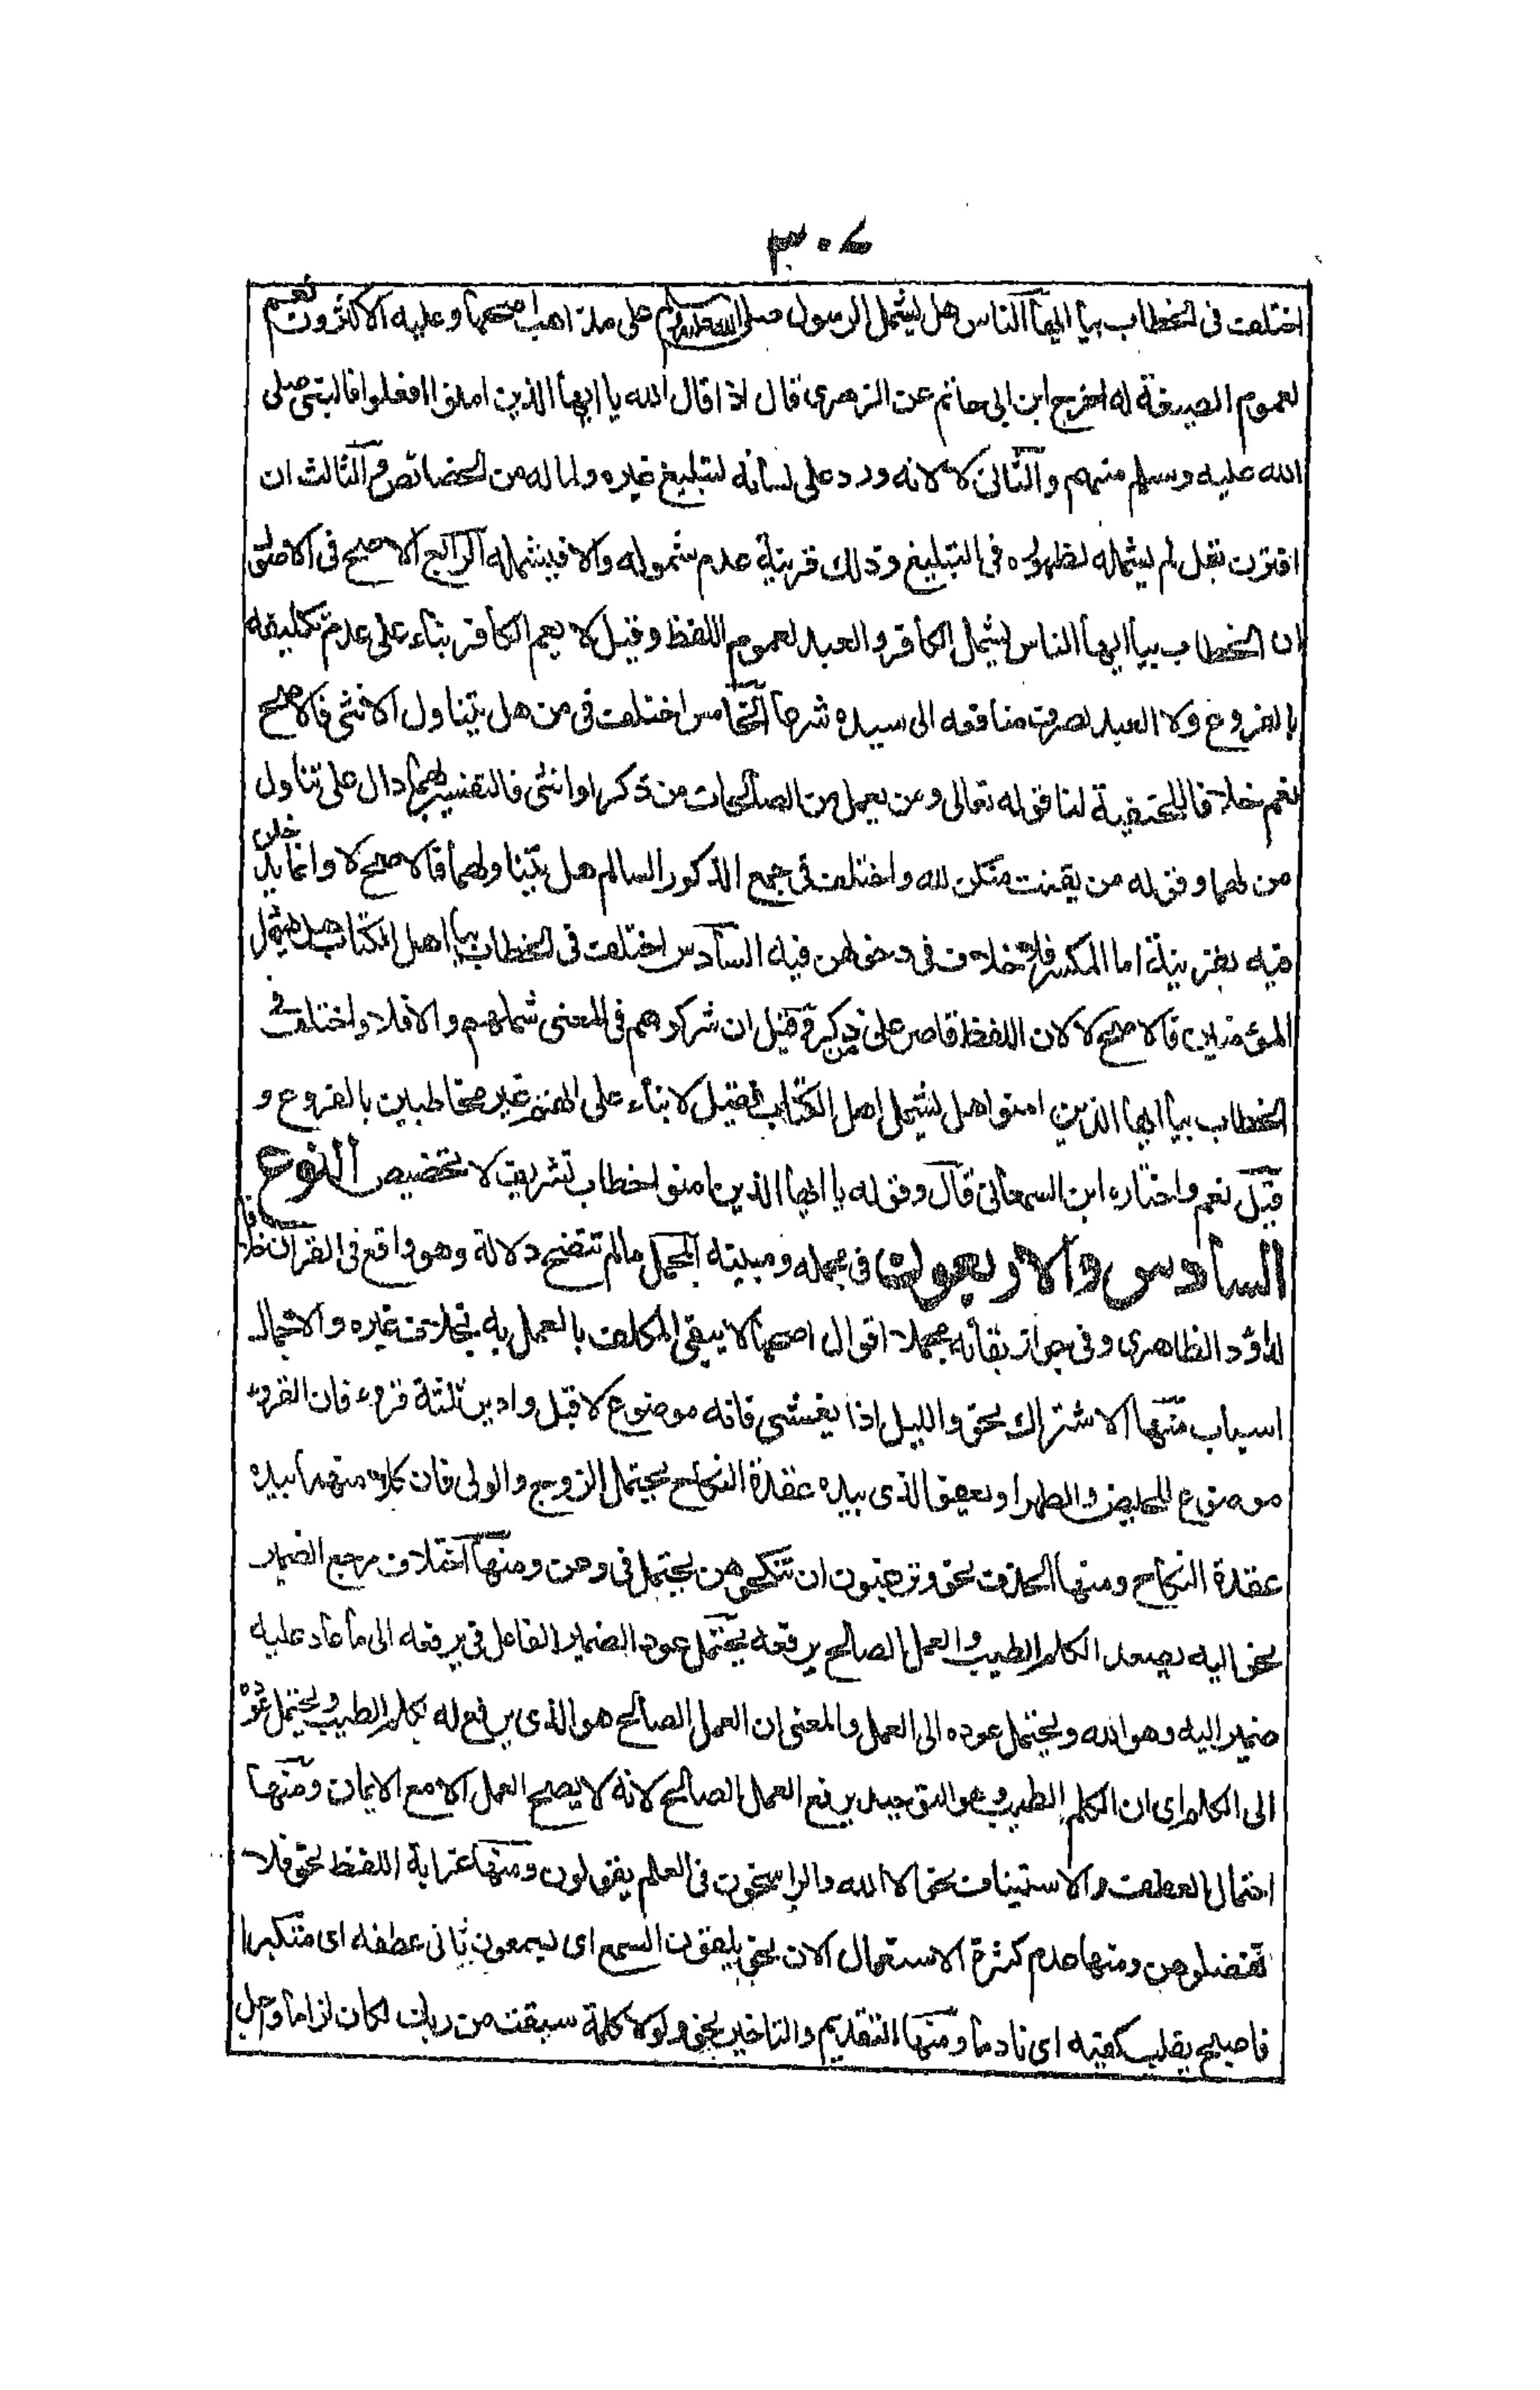 ٣٠٧
اختلف فى الخطاب بيا ايها الناس هل يشمل الرسول صلى الله عليه وسلم على مذاهب اصحها وعليه الاكثرون نعم
لعموم الصيغة له اخرج ابن ابى حاتم عن الزهرى قال اذا قال الله يا ايها الذين امنوا افعلوا فالنبى صلى
الله عليه وسلم منهم والثانى لا لانه ورد على لسانه لتبليغ غيره ولما له من الخصائص والثالث ان
اقترن بقل لم يشمله لظهوره فى التبليغ وذلك قرينة عدم شموله والا فيشمله الرابع الاصح فى الاصول
ان الخطاب بيا ايها الناس يشمل الكافر والعبد لعموم اللفظ وقيل لا يعم الكافر بناء على عدم تكليفه
بالفروع ولا العبد لصرف منافعه الى سيده شرعا الخامس اختلف فى من هل يتناول الانثى فالاصح
نعم خلافا للحنفية لنا قوله تعالى ومن يعمل من الصالحات من ذكر او انثى فالتفسير بهما دال على تناول
من لهما وقوله من يقنت منكن لله واختلف فى جمع الذكور السالم هل يتناولهما فالاصح لا وانما يدخلن
فيه بقرينة اما المكسر فلا خلاف فى دخولهن فيه السادس اختلف فى الخطاب بيا اهل الكتاب هل يشمل
المؤمنين فالاصح لا لان اللفظ قاصر على من ذكر وقيل ان شركوهم فى المعنى شملهم والا فلا واختلف فى
الخطاب بيا ايها الذين امنوا هل يشمل اهل الكتاب فقيل لا بناء على انهم غير مخاطبين بالفروع و
قيل نعم واختاره ابن السمعانى قال وقوله يا ايها الذين امنوا خطاب تشريف لا تخصيص النوع
السادس والاربعون فى مجمله ومبينه المجمل مالم تتضح دلالة وهو واقع فى القرآن خلافا
لداؤد الظاهرى وفى جواز بقائه مجملا اقوال اصحها لا يبقى المكلف بالعمل به بخلاف غيره والاجمال
اسباب منها الاشتراك نحو والليل اذا يغشى فانه موضوع لاقبل وادبر ثلثة قروء فان القرء
موضوع للحيض والطهر او يعفوا الذى بيده عقدة النكاح يحتمل الزوج والولى فان كلا منهما بيده
عقدة النكاح ومنها الحذف نحو وترغبون ان تنكحوهن يحتمل فى وعن ومنها اختلاف مرجع الضمير
نحو اليه يصعد الكلم الطيب والعمل الصالح يرفعه يحتمل عود الضمير الفاعل فى يرفعه الى ما عاد عليه
ضمير اليه وهو الله ويحتمل عوده الى العمل والمعنى ان العمل الصالح هو الذى يرفع له الكلم الطيب ويحتمل عوده
الى الكلم اى ان الكلم الطيب وهو التوحيد يرفع العمل الصالح لانه لا يصح العمل الا مع الايمان ومنها
احتمال العطف والاستيناف نحو الا الله والراسخون فى العلم يقولون ومنها غرابة اللفظ نحو فلا
تعضلوهن ومنها عدم كثرة الاستعمال الان نحو يلقون السمع اى يسمعون ثانى عطفه اى متكبرا
فاصبح يقلب كفيه اى نادما ومنها التقديم والتاخير نحو ولولا كلمة سبقت من ربك لكان لزاما واجل